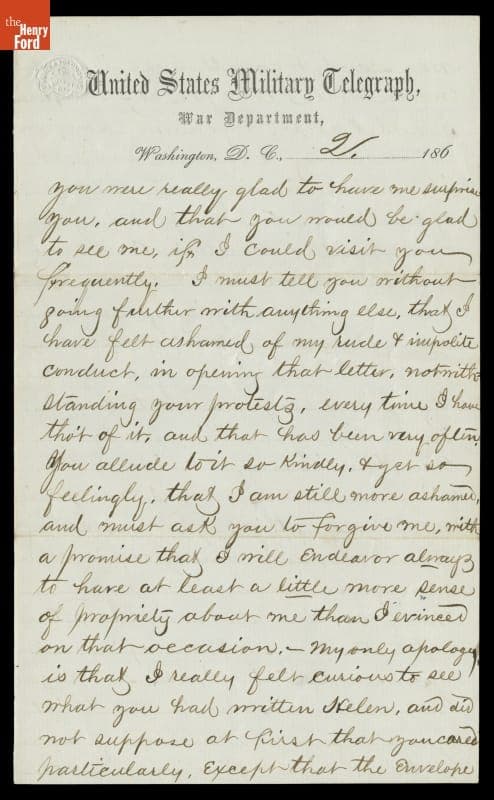 the
Henry
Ford
United States Military Telegraph,
War Department,
Washington, D. C., 2. 186
you were really glad to have me surprise
you, and that you would be glad
to see me, if I could visit you
frequently. I must tell you without
going further with anything else, that I
have felt ashamed of my rude & impolite
conduct, in opening that letter, notwith-
standing your protests, every time I have
tho't of it, and that has been very often.
You allude to it so kindly, & yet so
feelingly, that I am still more ashamed,
and must ask you to forgive me, with
a promise that I will endeavor always
to have at least a little more sense
of propriety about me than I evinced
on that occasion. – My only apology
is that I really felt curious to see
what you had written Helen, and did
not suppose at first that you cared
particularly, except that the envelope